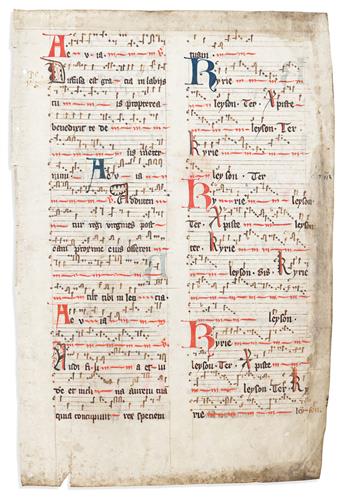 Ae v ia V.
Diffusa est gra cia in labiis
tu is propterea
benedixit te de
us in eter
num Ae v ia
V. Adducen
tur regi virgines post
eam proxime eius offeren
tur tibi in leti cia.
Ae v ia V.
Audi fi li a et vi
de et incli na aurem tua
quia concupiuit rex speciem
tuam
Kyrie
leyson. Ter. Xpiste
leyson. Ter
Kyrie
leyson. Ter.
Ky rie leyson
Ter. Xpiste leyson
Ter. Kyrie
leyson. bis. Kyrie
leyson.
Kyrie
leyson. Ter. Xpiste
leyson. Ter. Ky
rie ley son.